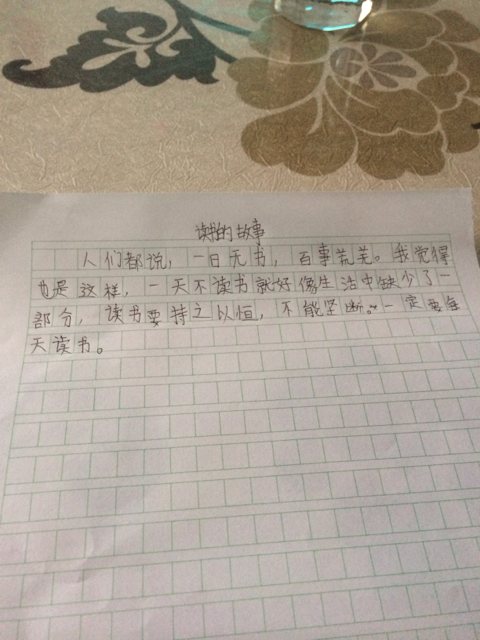 读书的故事
人们都说，一日无书，百事荒芜。我觉得
也是这样，一天不读书就好像生活中缺少了一
部分，读书要持之以恒，不能坚断。一定要每
天读书。